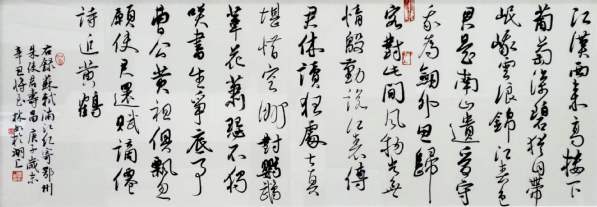 江漢西來高樓下
葡萄深碧猶自帶
岷峨雪浪錦江春色
君是南山遺愛守
我為劍外思歸
客對此間風物豈無
情殷勤說江表傳
君休讀狂處士真
堪惜空洲對鸚鵡
葦花蕭瑟不獨
笑書生爭底事
曹公黃祖俱飄忽
願使君還賦謫僊
詩追黃鶴
右錄蘇軾滿江紅寄鄂州
朱使君壽昌庚子歲末
辛丑將至林於湖上